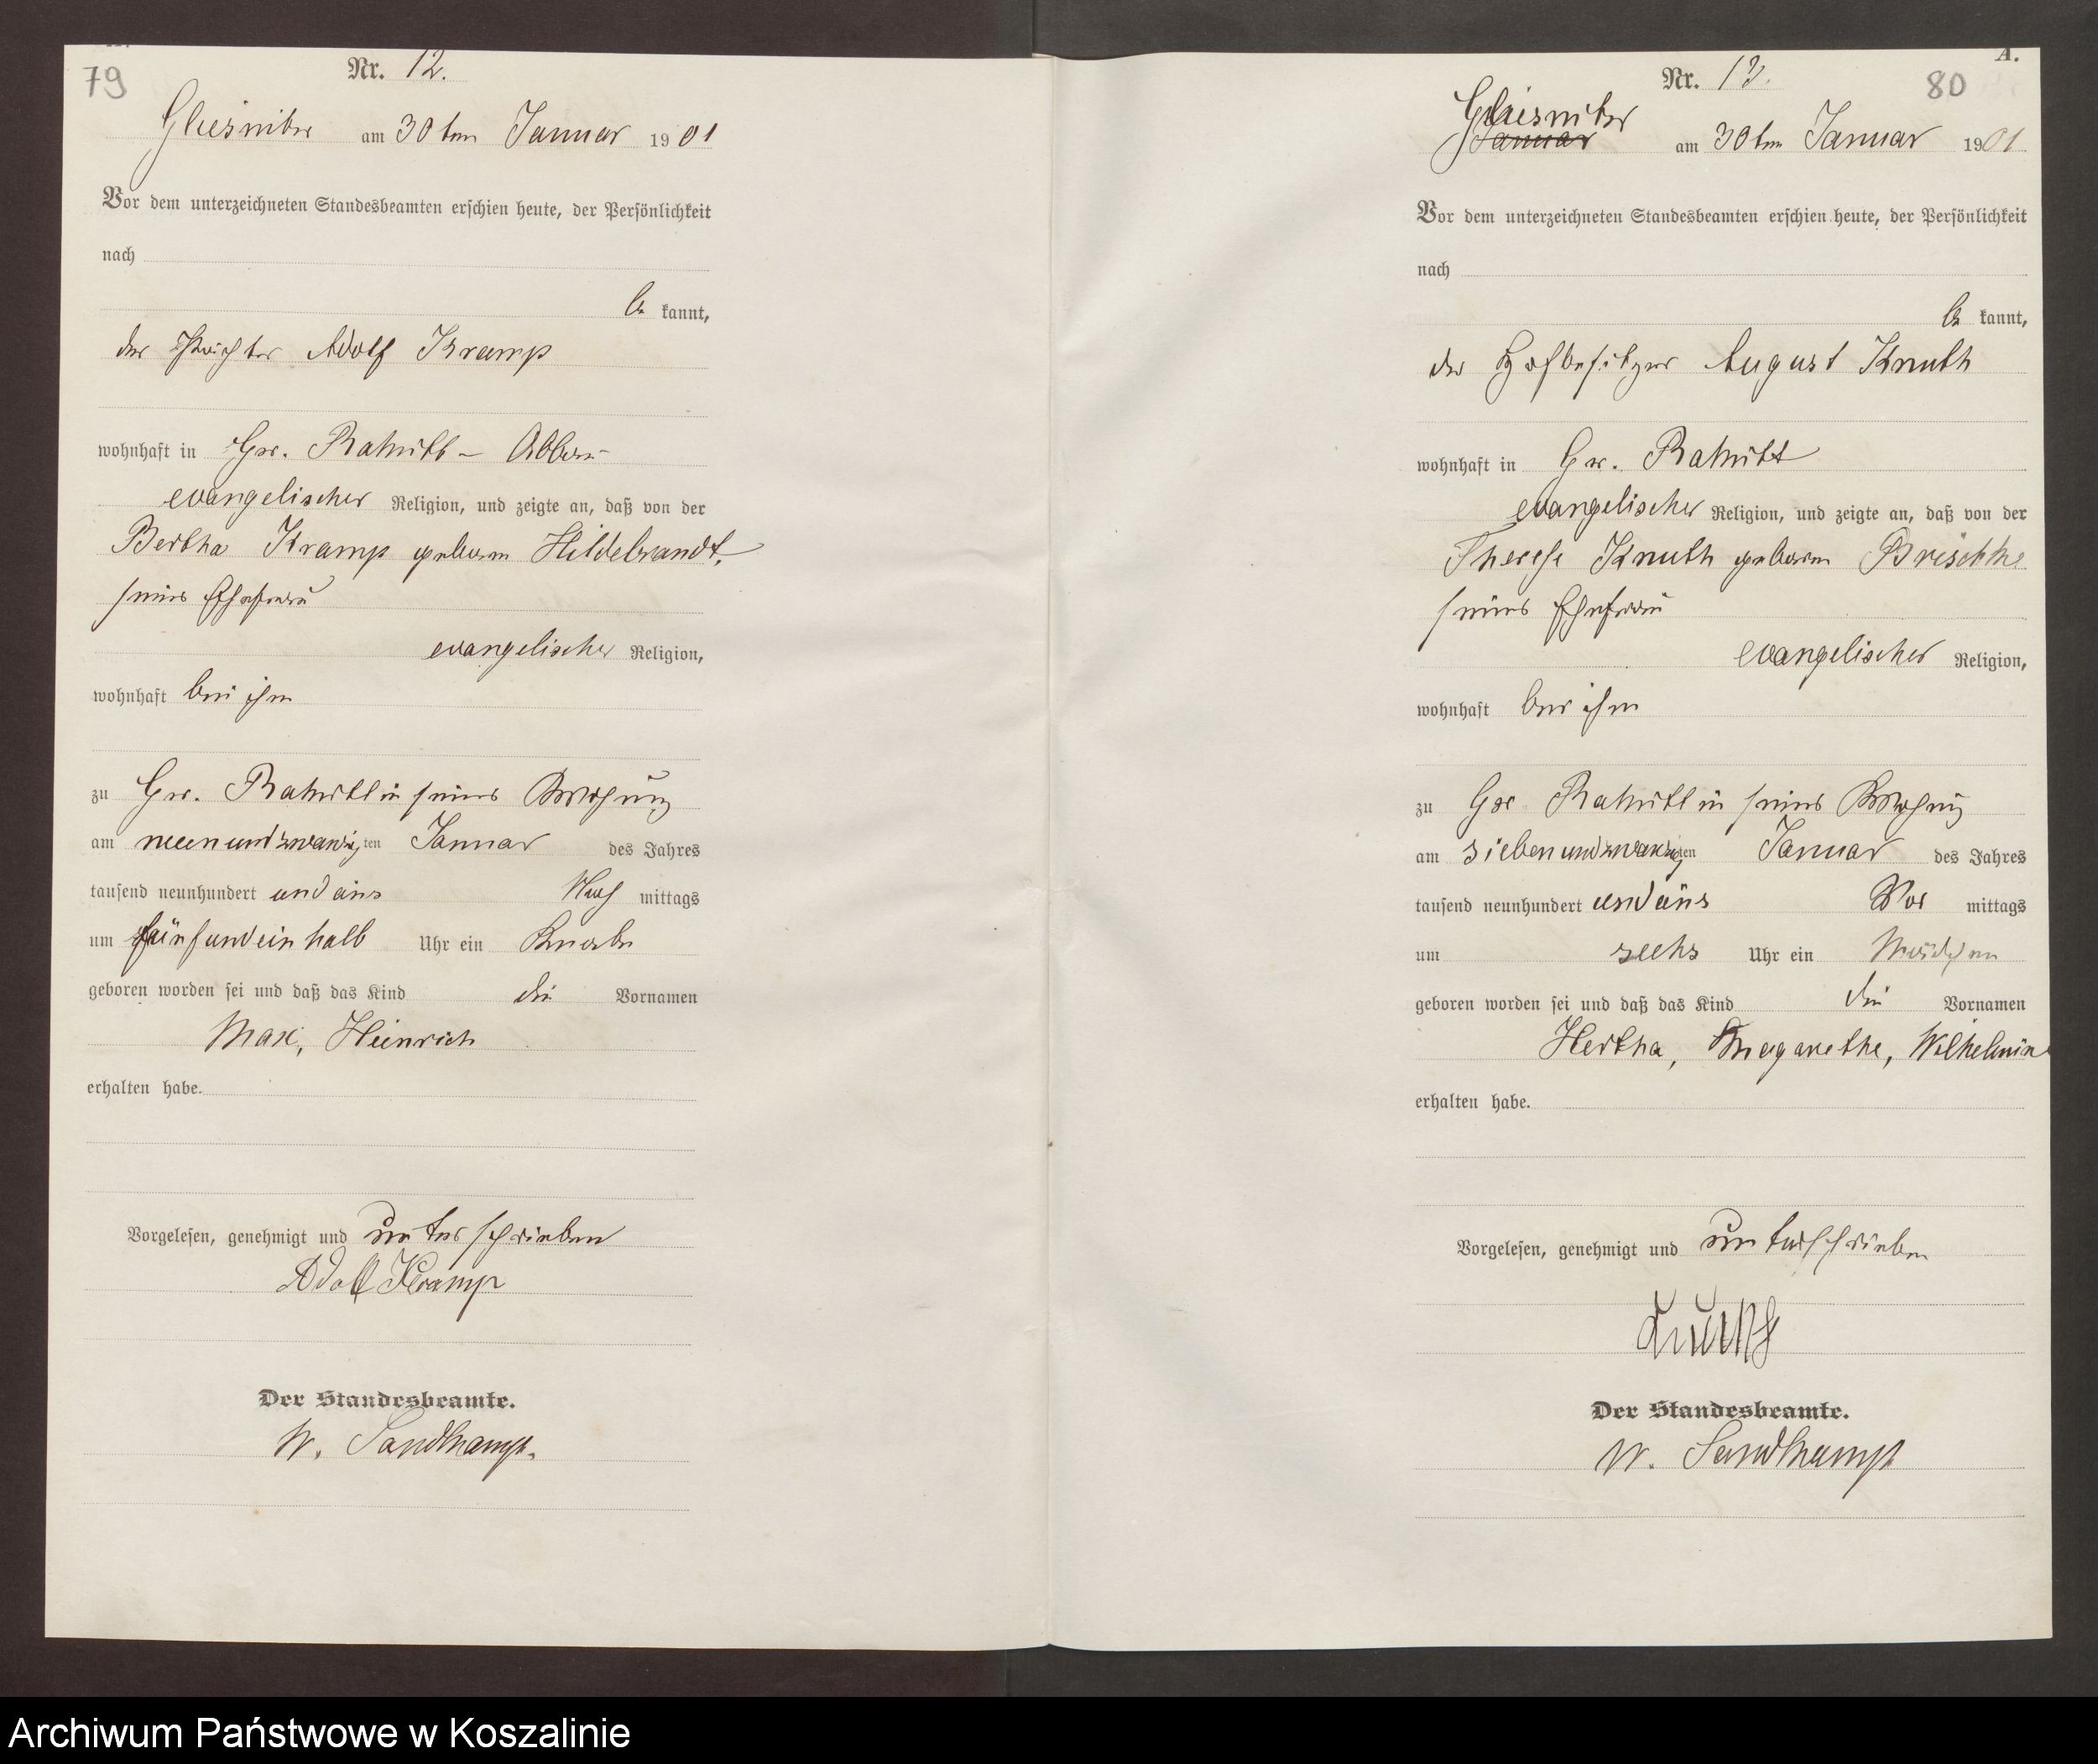 79
Nr. 12.
Gliesnitz am 30ten Januar 1901
Vor dem unterzeichneten Standesbeamten erschien heute, der Persönlichkeit
nach
be kannt,
der Pächter Adolf Kramp
wohnhaft in Gr. Rakitt - Abbau
evangelischer Religion, und zeigte an, daß von der
Bertha Kramp geboren Hildebrandt,
seiner Ehefrau
evangelischer Religion,
wohnhaft bei ihm
zu Gr. Rakitt in seiner Wohnung
am neunundzwanzigten Januar des Jahres
tausend neunhundert und eins Nach mittags
um fünfundeinhalb Uhr ein Knabe
geboren worden sei und daß das Kind die Vornamen
Max, Heinrich
erhalten habe.
Vorgelesen, genehmigt und unterschrieben
Adolf Kramp
Der Standesbeamte.
W. Sandkamp.
A.
Nr. 13. 80
Januar am 30ten Januar 1901
Vor dem unterzeichneten Standesbeamten erschien heute, der Persönlichkeit
nach
be kannt,
der Hofbesitzer August Knuth
wohnhaft in Gr. Rakitt
evangelischer Religion, und zeigte an, daß von der
Therese Knuth geboren
seiner Ehefrau
evangelischer Religion,
wohnhaft bei ihm
zu Gr. Rakitt in seiner Wohnung
am siebenundzwanzigten Januar des Jahres
tausend neunhundert und eins Vor mittags
um sechs Uhr ein Mädchen
geboren worden sei und daß das Kind die Vornamen
Hertha, Magarethe, Wilhelmine
erhalten habe.
Vorgelesen, genehmigt und unterschrieben
Knuth
Der Standesbeamte.
W. Sandkamp
Archiwum Państwowe w Koszalinie